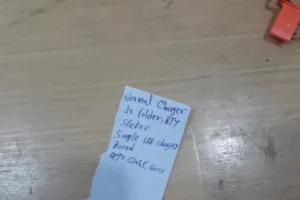 Normal Charger
In folder, BTY
Sticker
Simple USB charger
Board
Oppo Glass, Cover